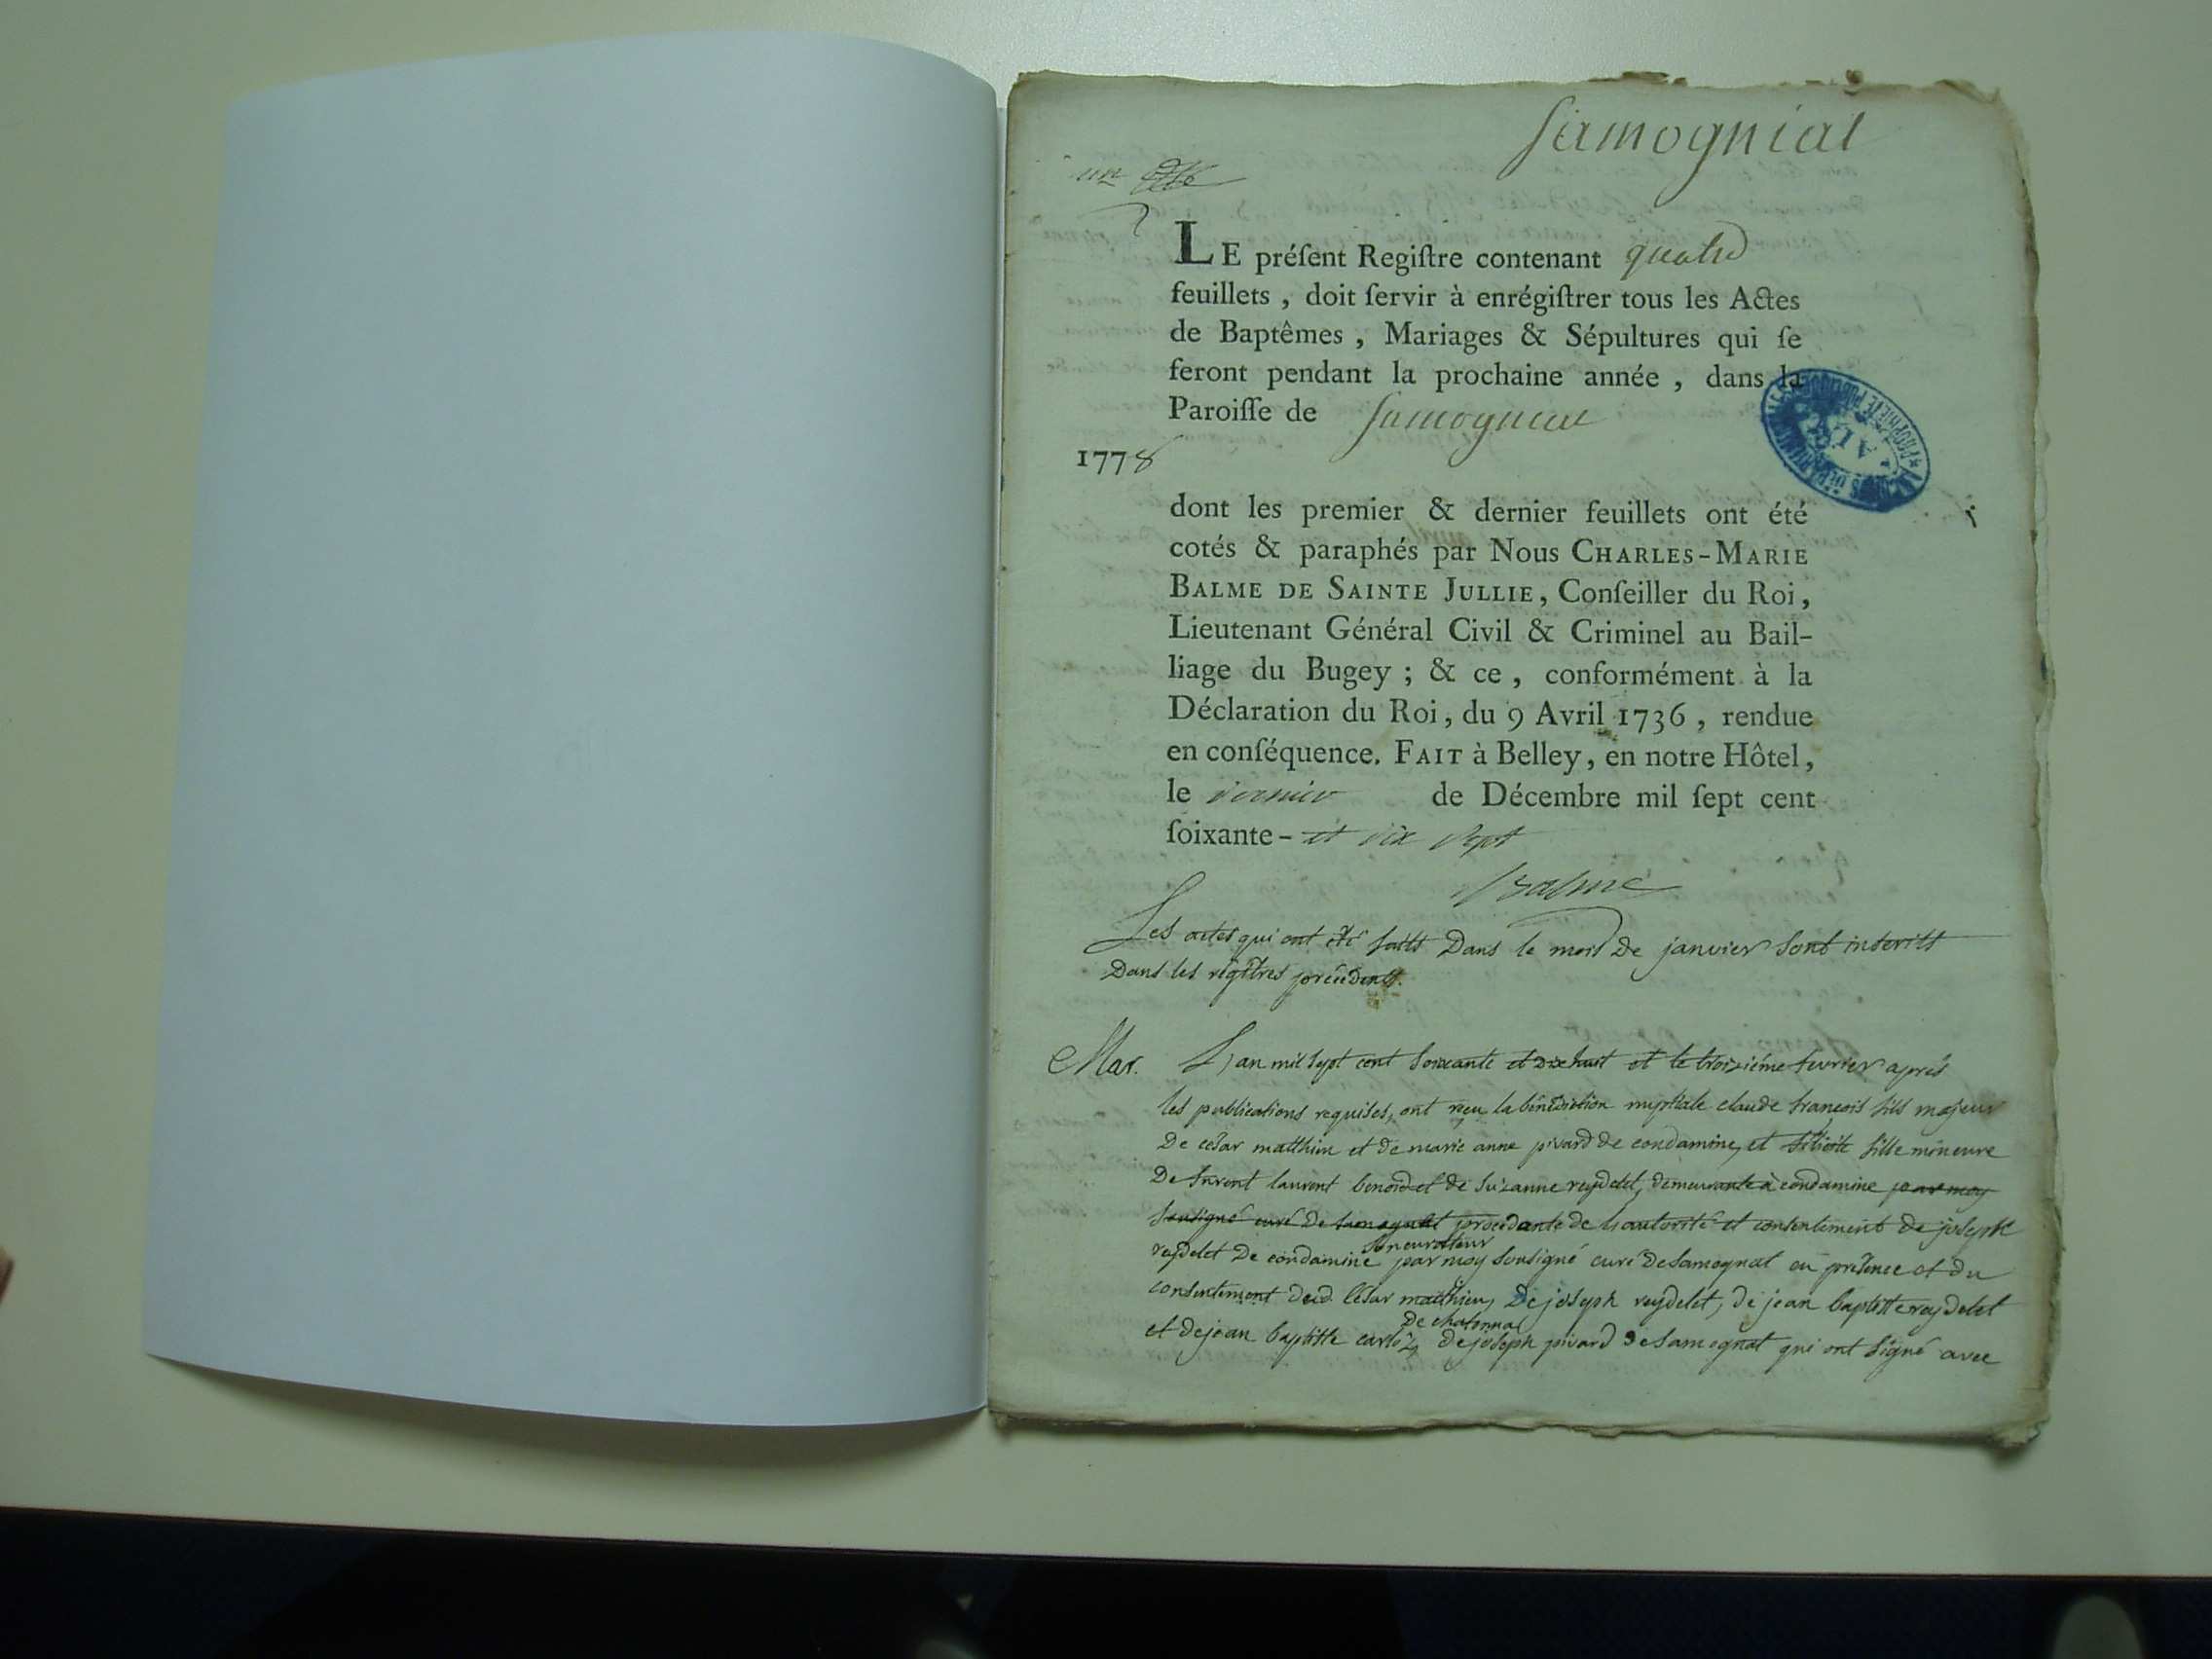 Samognial
un
LE préſent Regiſtre contenant quatre
feuillets , doit ſervir à enrégiſtrer tous les Actes
de Baptêmes , Mariages & Sépultures qui ſe
feront pendant la prochaine année , dans la
Paroiſſe de Samogniat
1778
dont les premier & dernier feuillets ont été
cotés & paraphés par Nous CHARLES-MARIE
BALME DE SAINTE JULLIE, Conſeiller du Roi,
Lieutenant Général Civil & Criminel au Bail-
liage du Bugey ; & ce , conformément à la
Déclaration du Roi, du 9 Avril 1736 , rendue
en conſéquence. FAIT à Belley, en notre Hôtel,
le dernier de Décembre mil ſept cent
ſoixante- et dix sept
Balme
Les actes qui ont été faits Dans le mois De janvier sont inscrits
Dans les régitres précédents.
Mar. L'an mil sept cent soixante et dix huit et le troizième fevrier après
les publications requises, ont reçu la bénédiction nuptiale claude françois fils majeur
De césar matthieu et de marie anne pivard de condamine, et félicité fille mineure
De laurent benoid et de suzanne reydelet, demeurante à condamine par moy
sousigné curé De samognat procédante de l'autorité et consentement de joseph
reydelet De condamine son curatteur par moy sousigné curé De samognat en présence et du
consentement dud césar matthieu, De joseph reydelet, de jean baptiste reydelet
et de jean baptiste De chatonnas De joseph pivard De samognat qui ont signé avec